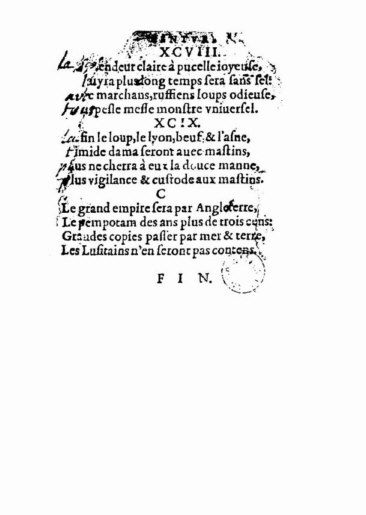 CENTVRI X.
XCVIII.
La splendeur claire à pucelle ioyeuse,
luyra plus long temps sera sans sel:
auec marchans, ruffiens loups odieuse,
tous pesle mesle monstre vniuersel.
XCIX.
La fin le loup, le lyon, beuf, & l'asne,
timide dama seront auec mastins,
plus ne cherra à eux la douce manne,
plus vigilance & custode aux mastins.
C
Le grand empire sera par Angleterre,
Le pempotam des ans plus de trois cens:
Grandes copies passer par mer & terre,
Les Lusitains n'en seront pas contens.
F I N.